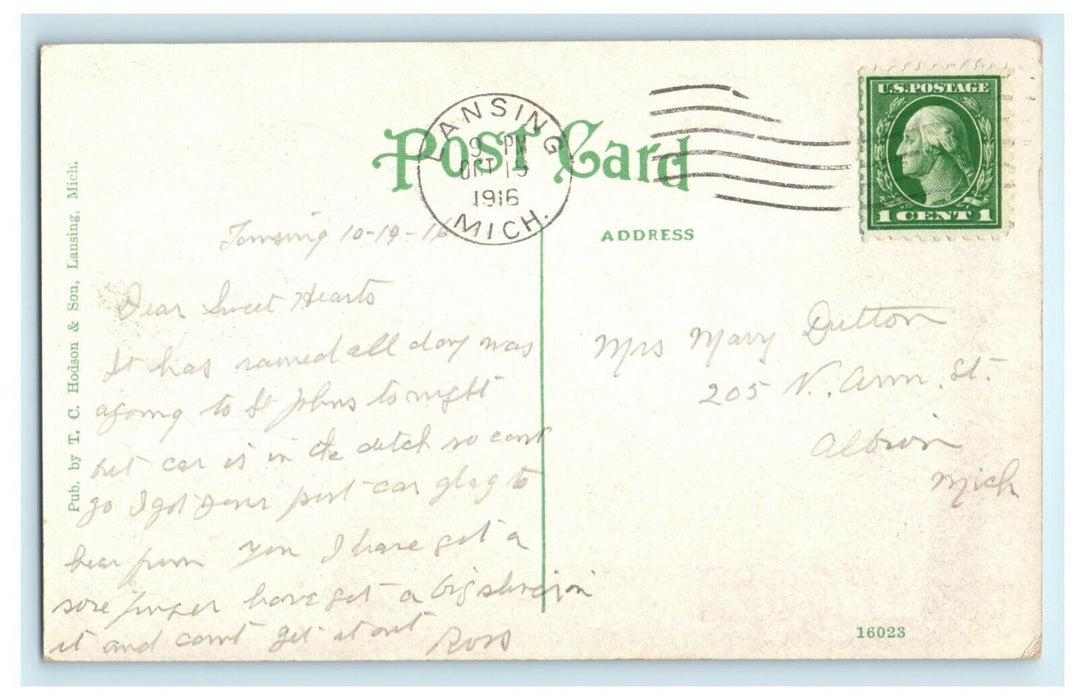 Post Card
LANSING
9 PM
OCT 19
1916
MICH.
U.S.POSTAGE
1 CENT 1
ADDRESS
Pub. by T. C. Hodson & Son, Lansing, Mich.
Lansing 10-19-16
Dear Sweet Hearts
It has rained all day was
agoing to St Johns to night
but car is in the ditch so cant
go I got your post car glag to
hear from you I have got a
sore finger have got a big sliver in
it and cant get it out
Ross
Mrs Mary Dutton
205 N. Ann. St.
Albion
Mich
16023